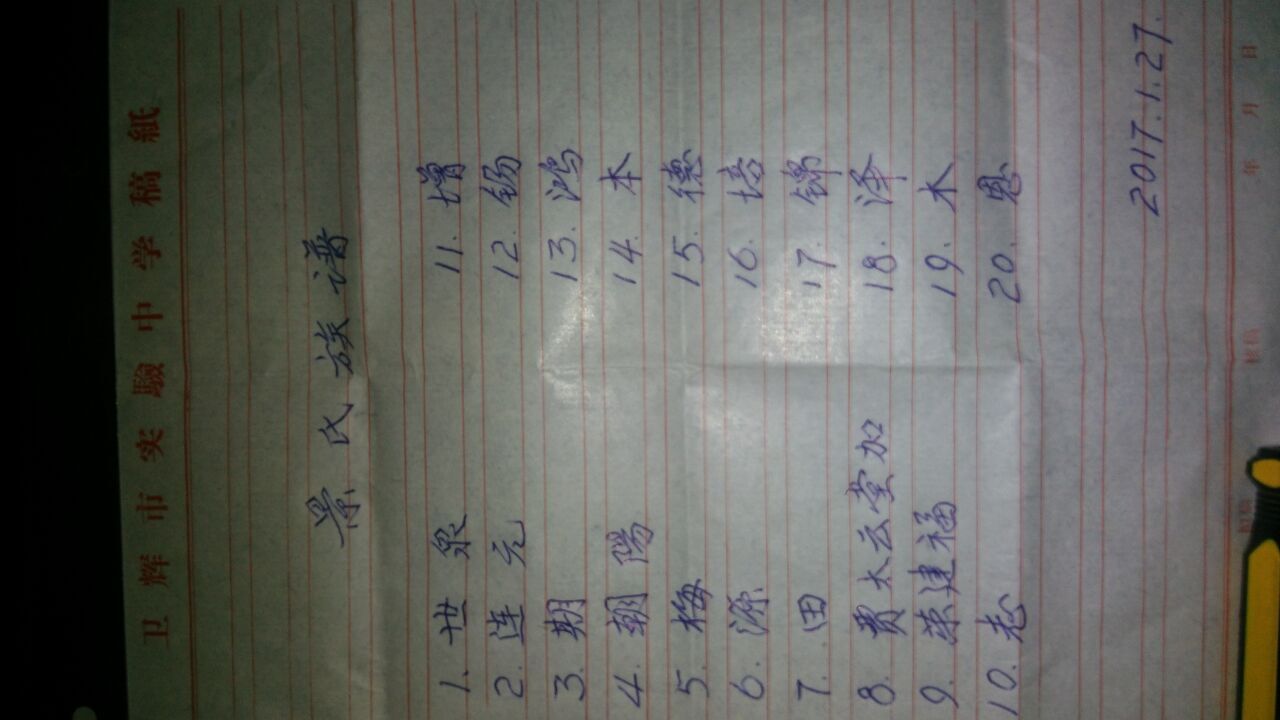 卫辉市实驗中学稿紙
景氏族谱
1. 世泉
2. 连元
3. 期
4. 朝陽
5. 梅
6. 源
7. 田
8. 贵太云堂加
9. 荣建福
10. 志
11. 增
12. 锡
13. 鸿
14. 本
15. 德
16. 培
17. 锦
18. 泽
19. 木
20. 恩
2017.1.27.
年 月 日